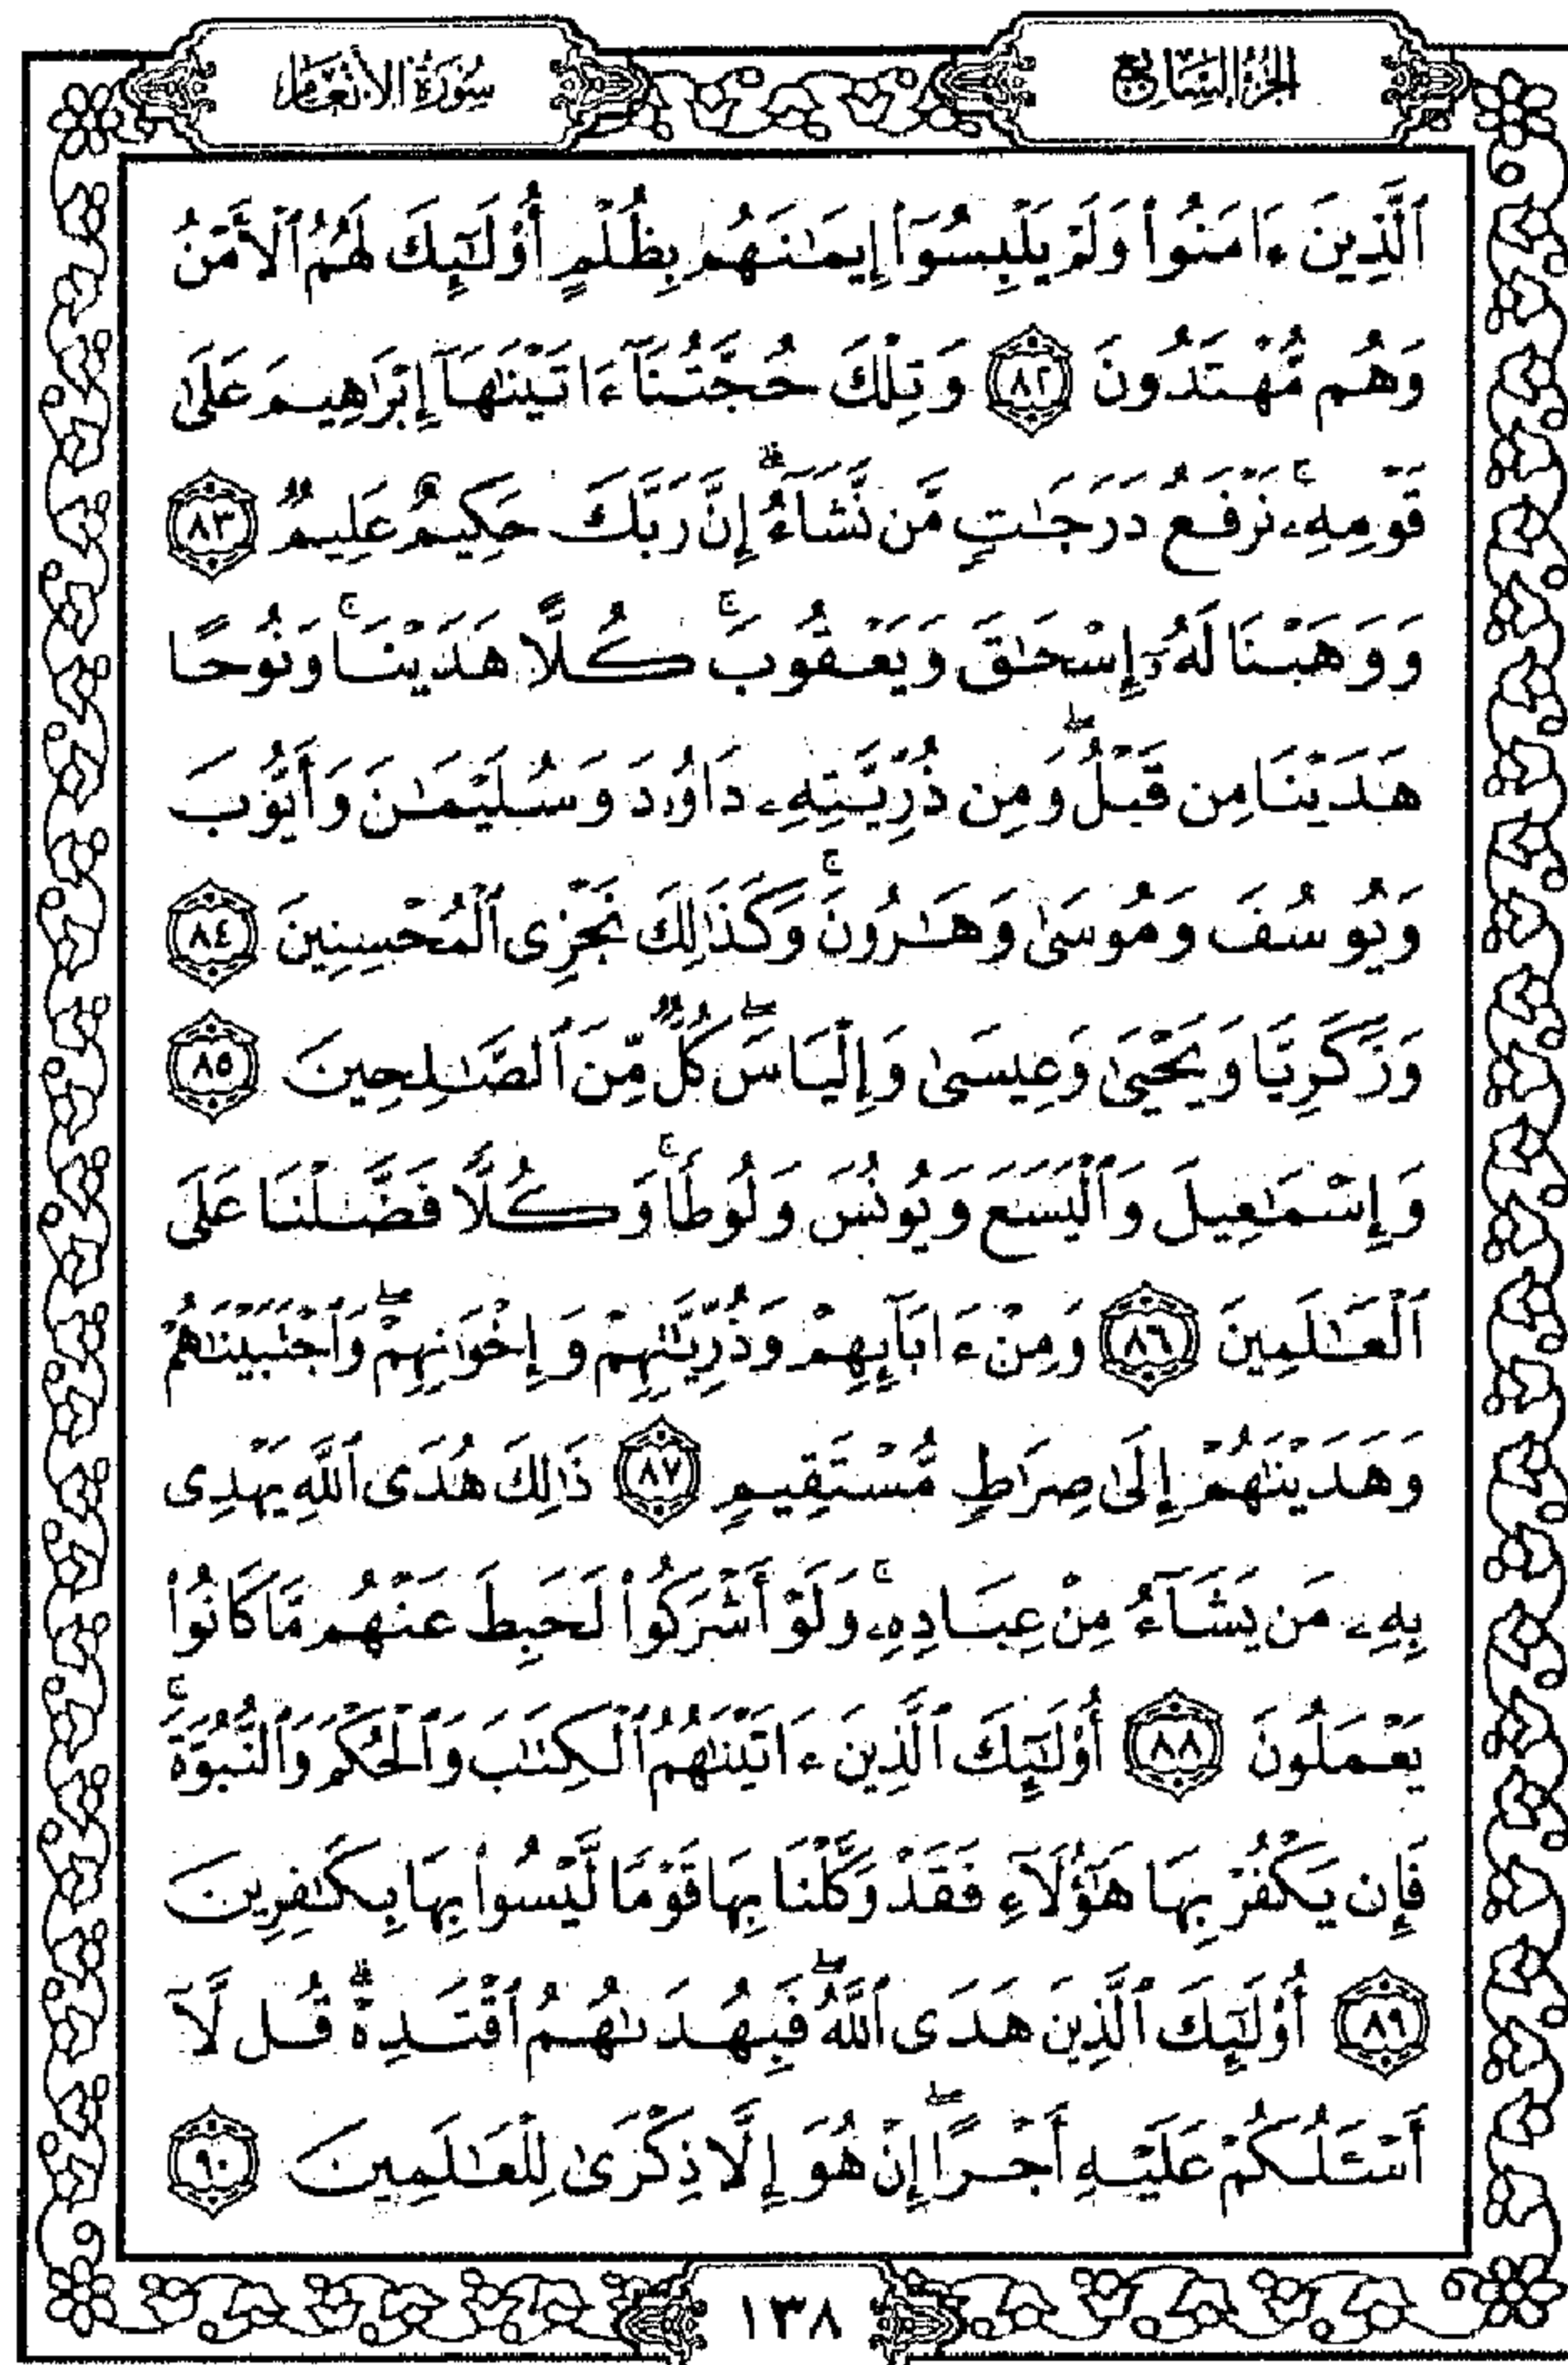 الجزء السابع
سورة الأنعام
ٱلَّذِينَ ءَامَنُوا۟ وَلَمْ يَلْبِسُوٓا۟ إِيمَـٰنَهُم بِظُلْمٍ أُو۟لَـٰٓئِكَ لَهُمُ ٱلْأَمْنُ
وَهُم مُّهْتَدُونَ ٨٢ وَتِلْكَ حُجَّتُنَآ ءَاتَيْنَـٰهَآ إِبْرَٰهِيمَ عَلَىٰ
قَوْمِهِۦۚ نَرْفَعُ دَرَجَـٰتٍ مَّن نَّشَآءُۗ إِنَّ رَبَّكَ حَكِيمٌ عَلِيمٌ ٨٣
وَوَهَبْنَا لَهُۥٓ إِسْحَـٰقَ وَيَعْقُوبَۚ كُلًّا هَدَيْنَاۚ وَنُوحًا
هَدَيْنَا مِن قَبْلُۖ وَمِن ذُرِّيَّتِهِۦ دَاوُۥدَ وَسُلَيْمَـٰنَ وَأَيُّوبَ
وَيُوسُفَ وَمُوسَىٰ وَهَـٰرُونَۚ وَكَذَٰلِكَ نَجْزِى ٱلْمُحْسِنِينَ ٨٤
وَزَكَرِيَّا وَيَحْيَىٰ وَعِيسَىٰ وَإِلْيَاسَۖ كُلٌّ مِّنَ ٱلصَّـٰلِحِينَ ٨٥
وَإِسْمَـٰعِيلَ وَٱلْيَسَعَ وَيُونُسَ وَلُوطًاۚ وَكُلًّا فَضَّلْنَا عَلَى
ٱلْعَـٰلَمِينَ ٨٦ وَمِنْ ءَابَآئِهِمْ وَذُرِّيَّـٰتِهِمْ وَإِخْوَٰنِهِمْۖ وَٱجْتَبَيْنَـٰهُمْ
وَهَدَيْنَـٰهُمْ إِلَىٰ صِرَٰطٍ مُّسْتَقِيمٍ ٨٧ ذَٰلِكَ هُدَى ٱللَّهِ يَهْدِى
بِهِۦ مَن يَشَآءُ مِنْ عِبَادِهِۦۚ وَلَوْ أَشْرَكُوا۟ لَحَبِطَ عَنْهُم مَّا كَانُوا۟
يَعْمَلُونَ ٨٨ أُو۟لَـٰٓئِكَ ٱلَّذِينَ ءَاتَيْنَـٰهُمُ ٱلْكِتَـٰبَ وَٱلْحُكْمَ وَٱلنُّبُوَّةَۚ
فَإِن يَكْفُرْ بِهَا هَـٰٓؤُلَآءِ فَقَدْ وَكَّلْنَا بِهَا قَوْمًا لَّيْسُوا۟ بِهَا بِكَـٰفِرِينَ
٨٩ أُو۟لَـٰٓئِكَ ٱلَّذِينَ هَدَى ٱللَّهُۖ فَبِهُدَىٰهُمُ ٱقْتَدِهْۗ قُل لَّآ
أَسْـَٔلُكُمْ عَلَيْهِ أَجْرًاۖ إِنْ هُوَ إِلَّا ذِكْرَىٰ لِلْعَـٰلَمِينَ ٩٠
١٣٨